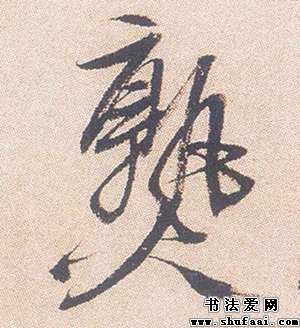 熟
书法爱网
www.shufaai.com